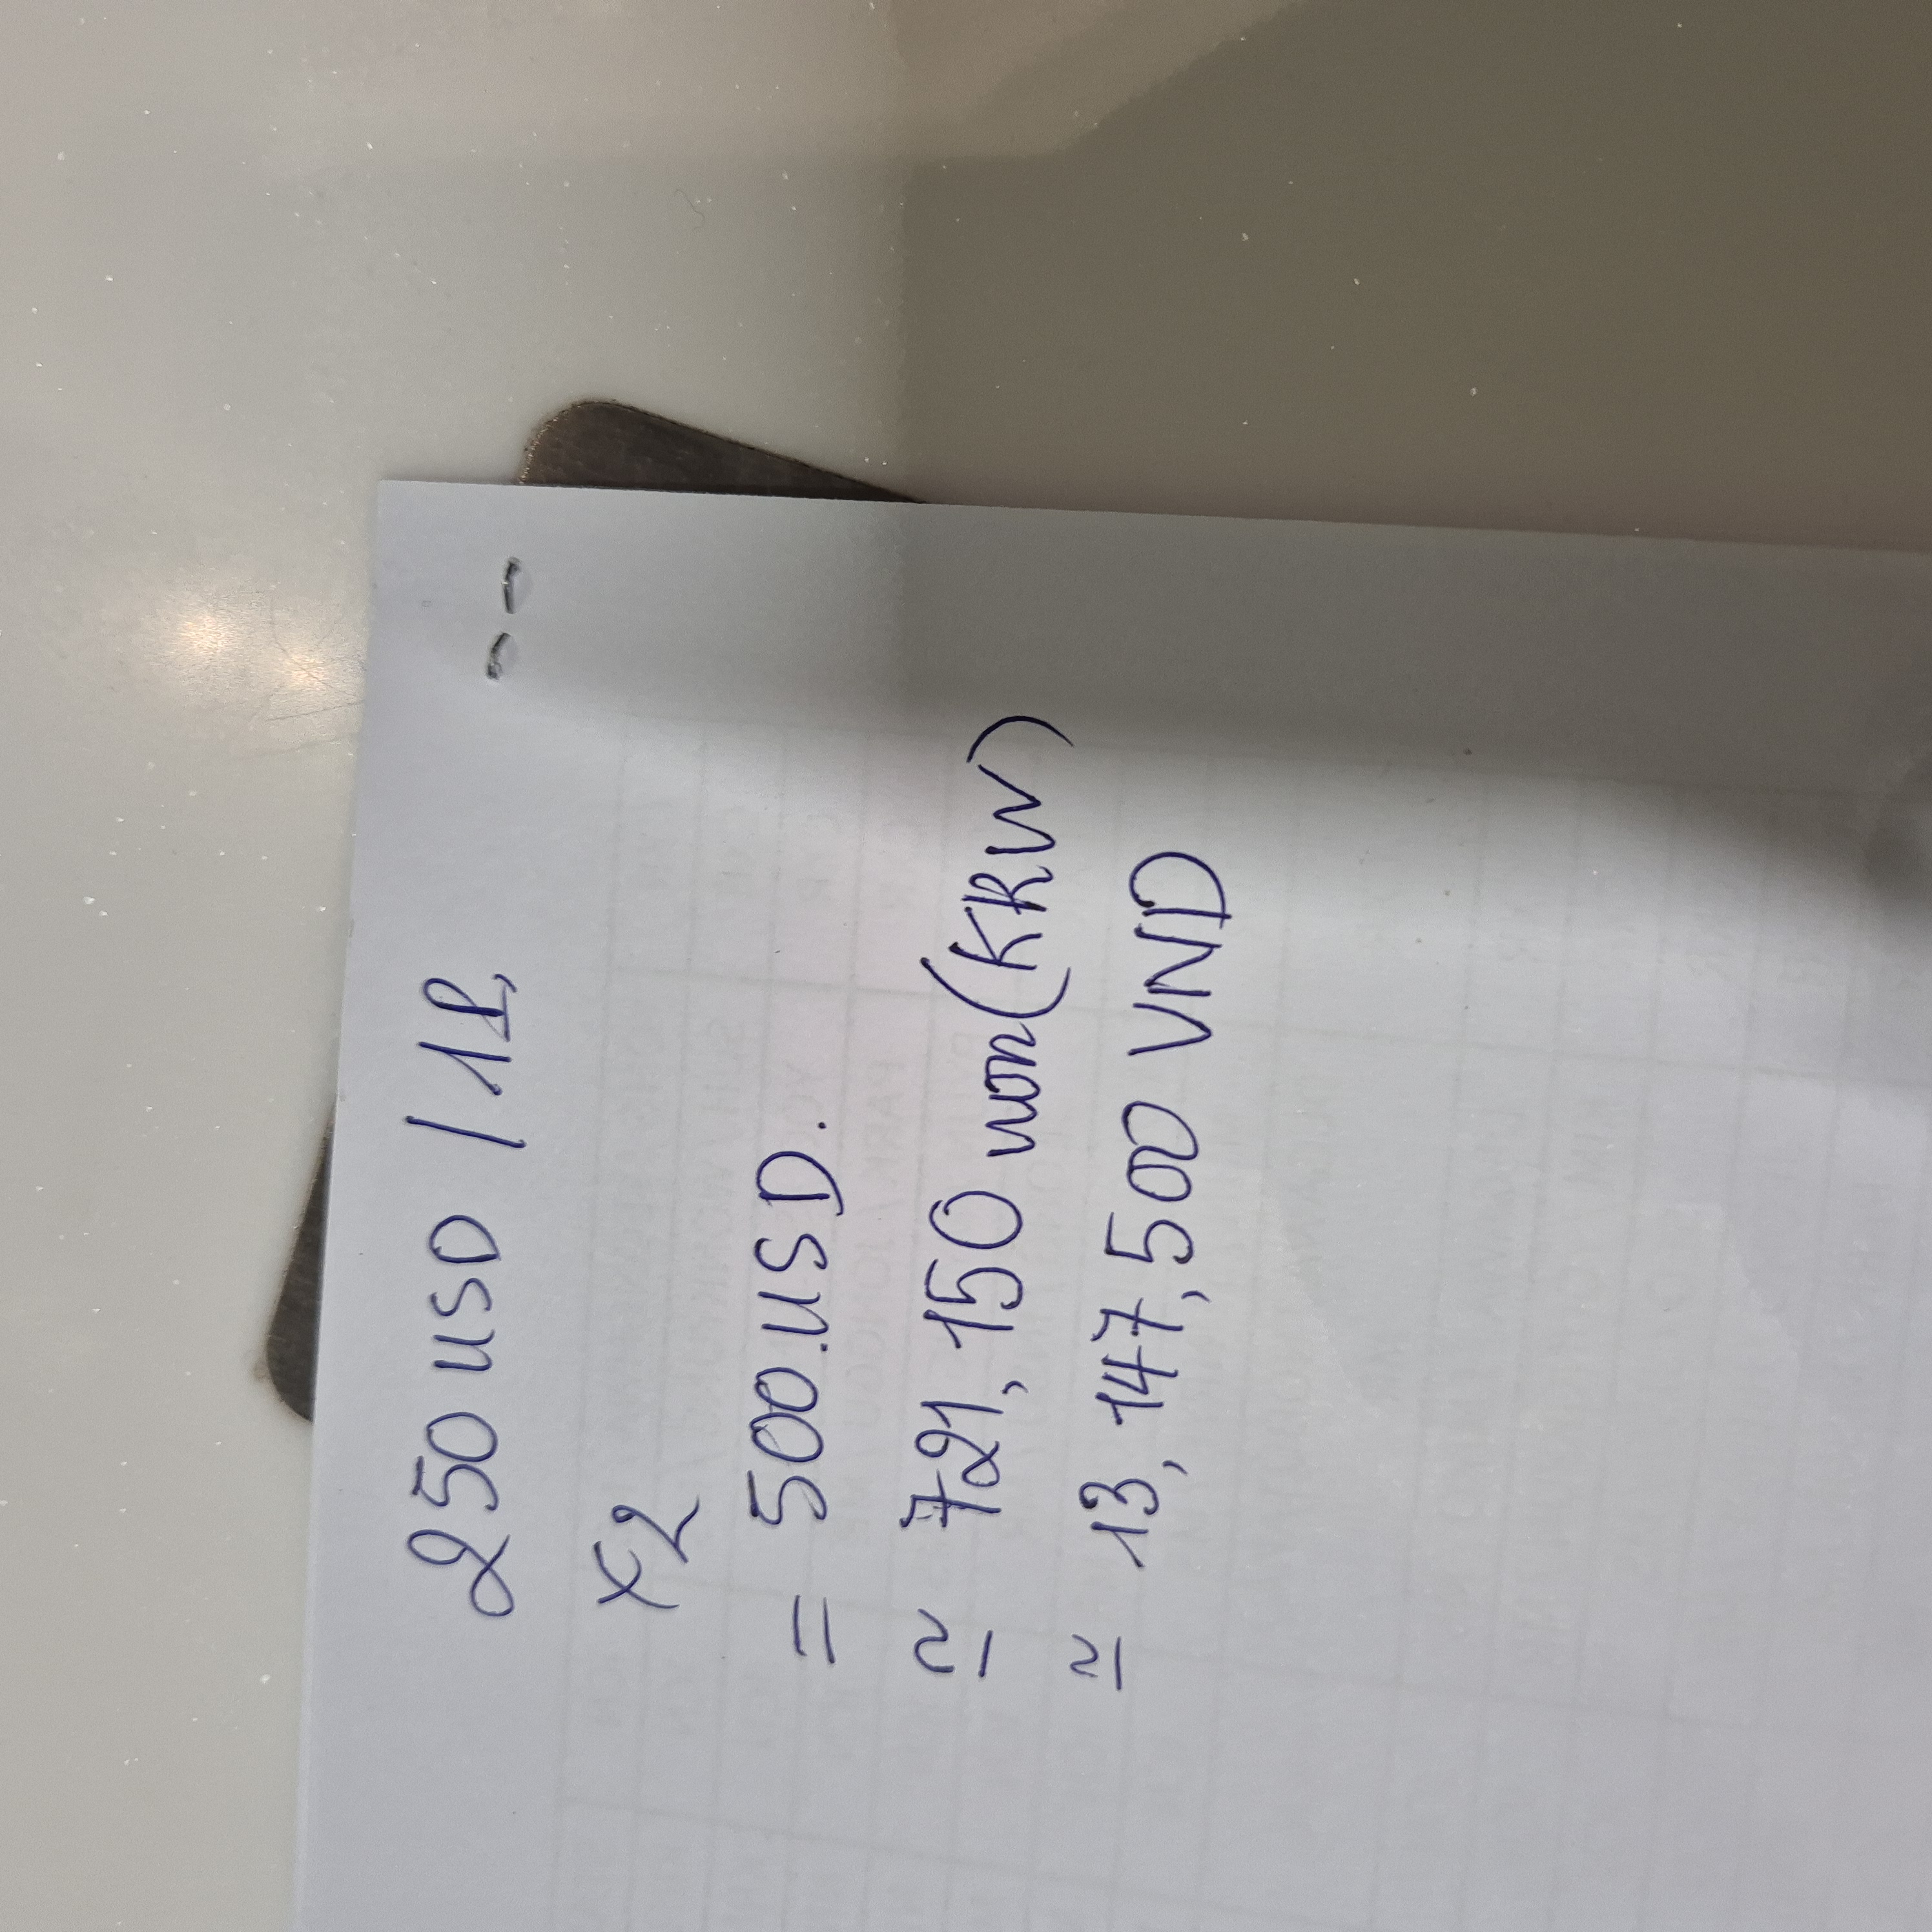 250 USD / 1P,
x2
= 500.USD.
≃ 721,150 won (KRW)
≃ 13,147,500 VND